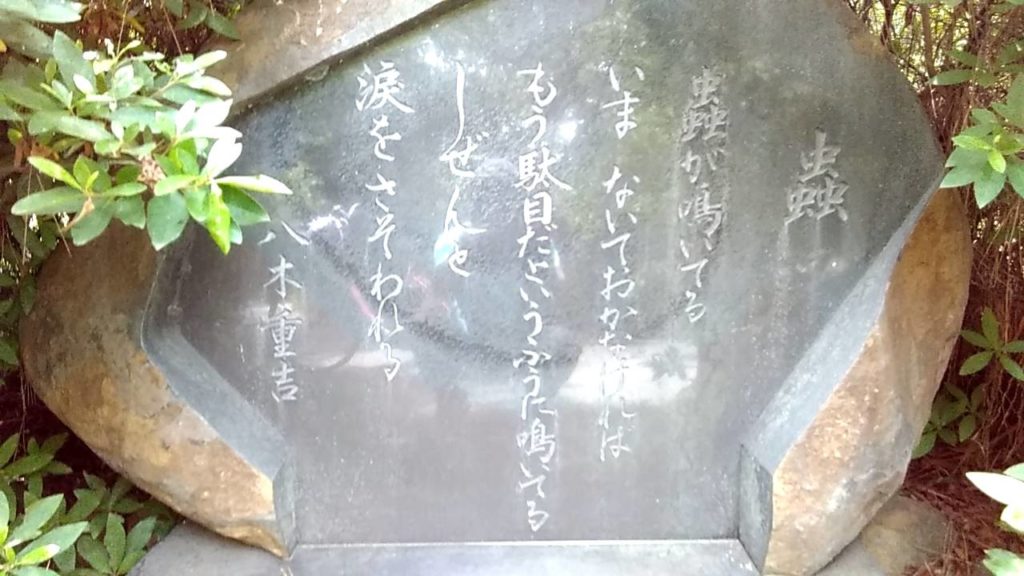 蟲
蟲が鳴いてる
いま ないておかなければ
もう駄目だというふうに鳴いてる
しぜんと
涙をさそわれる
八木重吉